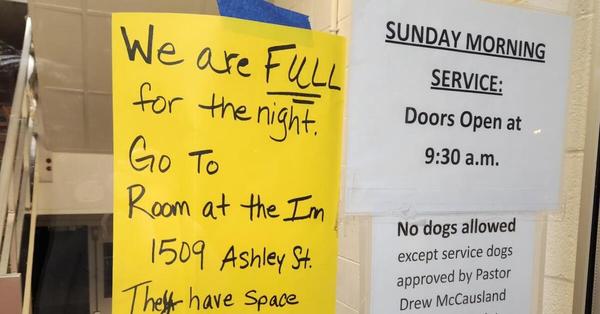 We are FULL
for the night.
Go To
Room at the Inn
1509 Ashley St.
They have space
SUNDAY MORNING
SERVICE:
Doors Open at
9:30 a.m.
No dogs allowed
except service dogs
approved by Pastor
Drew McCausland